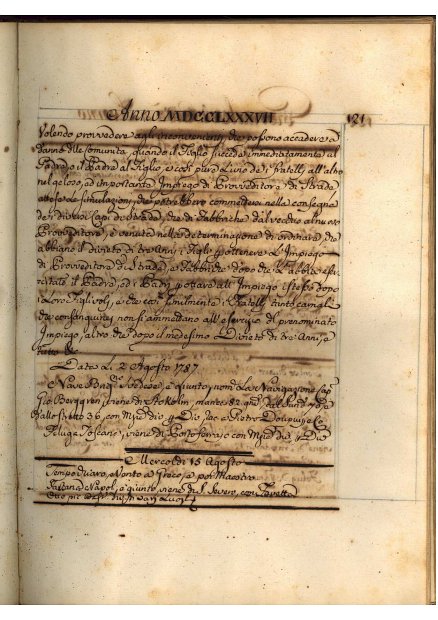 Anno MDCCLXXXVII 121
Volendo provvedere agli inconvenienti, che possono accadere a
danno delle Comunità, quando il Figlio succede immediatamente al
Padre, o il Padre al Figlio, e così pure l'uno de i fratelli all'altro
nel geloso, ed importante Impiego di Provveditore di Strade
attese le simulazioni, che potrebbero commettersi nella consegna
de i diversi Capi di Strade, e di Fabbriche dal vecchio al nuovo
Provveditore, è venuta nella determinazione di ordinare che
abbiano il divieto di tre Anni i Figli per ottenere l'Impiego
di Provveditore di Strade, e Fabbriche dopo che l'abbia eser-
citato il Padre, ed i Padri per fare all'Impiego istesso dopo
i Loro Figlivoli, e che così similmente i Fratelli, tanto carnali
che consanguinei non si ammettano all'esercizio del prenominato
Impiego, altro che dopo il medesimo Divieto di tre Anni, e
tutto &c
Data Li 2 Agosto 1787
Nave Svedese è giunta, nom. La Navigazione
Berggren, viene di Stokolm, manca 82 gni
dallo stretto 36, con
Toscano, viene di Portoferraio con
Mercoldi 15 Agosto
Tempo vario, e Vento a Greco, e poi Maestro
Napol. è giunto, viene di S. Severo, con